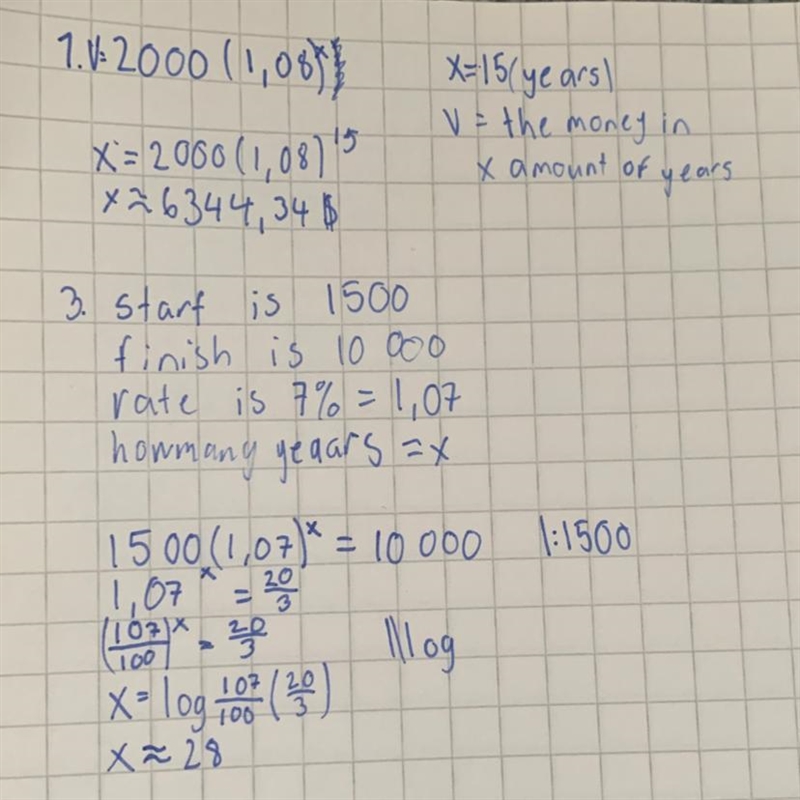 1. V=2000(1,08)ˣ
x=15(years)
V = the money in
x amount of years
x=2000(1,08)¹⁵
x≈6344,34$
3. start is 1500
finish is 10 000
rate is 7% = 1,07
howmany yeaars =x
1500(1,07)ˣ = 10 000 |:1500
1,07ˣ = 20/3
(107/100)ˣ = 20/3 ||log
x=log 107/100 (20/3)
x≈28